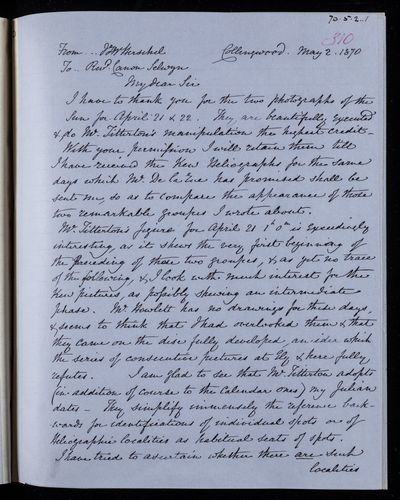 70-5-2-1
310
From .. J F W Herschel Collingwood. May 2. 1870
To .. Revd. Canon Selwyn
My dear Sir
I have to thank you for the two photographs of the
Sun for April 21 & 22. They are beautifully executed
& do Mr. Titterton's manipulation the highest credit -
With your permission I will retain them till
I have received the Kew Heliographs for the same
days which Mr. De la Rue has promised shall be
sent me, so as to compare the appearance of those
two remarkable groupes I wrote about.
Mr. Titterton's figure for April 21 is exceedingly
interesting as it shews the very first beginning of
the preceding of these two groupes, & as yet no trace
of the following, & I look with much interest for the
Kew pictures, as possibly shewing an intermediate
phase. Mr Howlett has no drawings for these days,
& seems to think that I had overlooked them & that
they came on the disc fully developed, an idea which
the series of consecutive pictures at Ely & here fully
refutes. I am glad to see that Mr. Titterton adopts
(in addition of course to the Calendar ones) my Julian
dates - They simplify immensely the reference back-
wards for identifications of individual spots or of
Heliographic localities as habitual seats of spots.
I have tried to ascertain whether there are such
localities